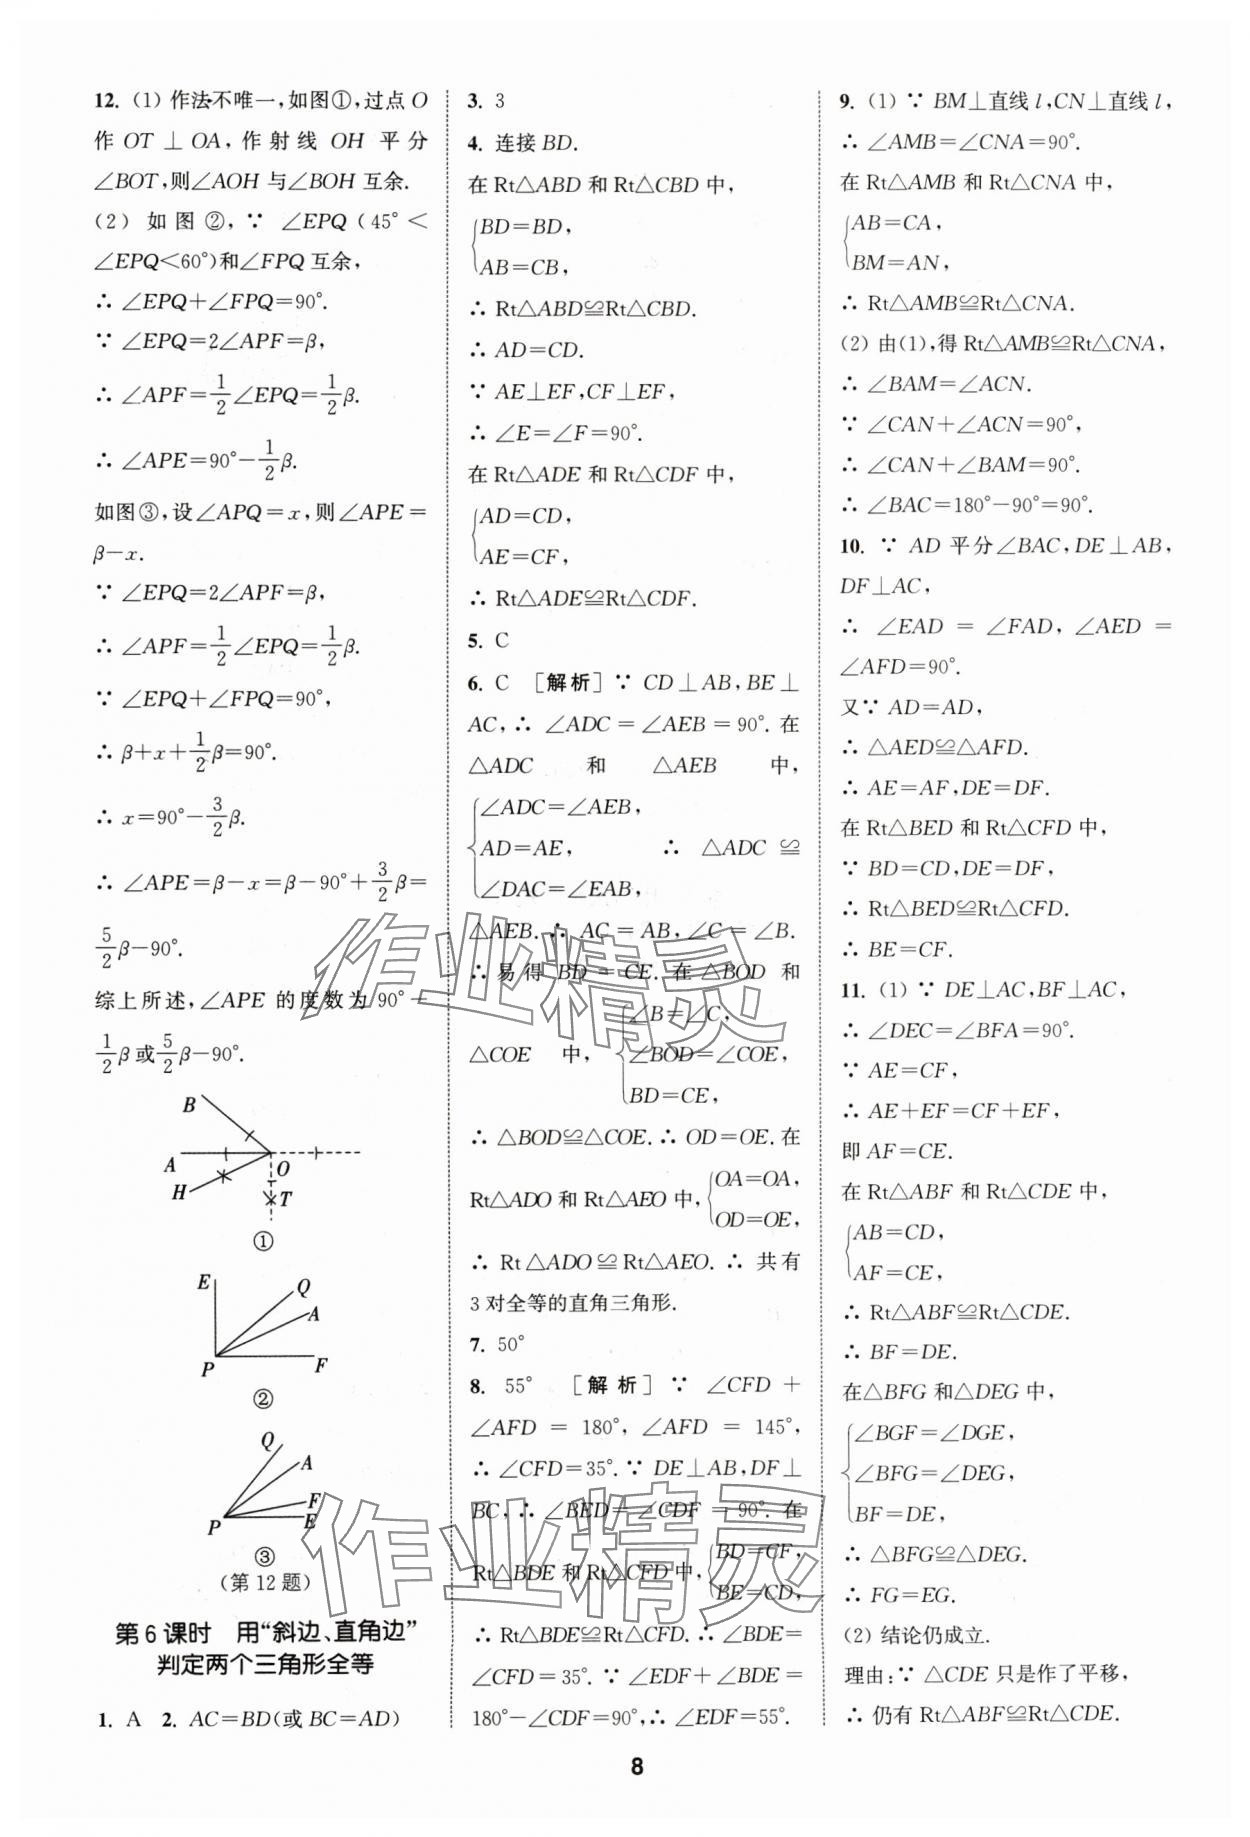 12. (1) 作法不唯一,如图①,过点 O
作 OT ⊥ OA,作射线 OH 平分
∠BOT,则∠AOH 与∠BOH 互余.
(2) 如图②,∵ ∠EPQ (45°<
∠EPQ<60°)和∠FPQ 互余,
∴ ∠EPQ+∠FPQ=90°.
∵ ∠EPQ=2∠APF=β,
∴ ∠APF=1/2∠EPQ=1/2β.
∴ ∠APE=90°-1/2β.
如图③,设∠APQ=x,则∠APE=
β-x.
∵ ∠EPQ=2∠APF=β,
∴ ∠APF=1/2∠EPQ=1/2β.
∵ ∠EPQ+∠FPQ=90°,
∴ β+x+1/2β=90°.
∴ x=90°-3/2β.
∴ ∠APE=β-x=β-90°+3/2β=
5/2β-90°.
综上所述,∠APE 的度数为 90°-
1/2β或5/2β-90°.
B
A
O
H
T
①
E
Q
A
P
F
②
Q
A
F
P
E
③
(第 12 题)
第 6 课时 用“斜边、直角边”
判定两个三角形全等
1. A 2. AC=BD(或 BC=AD)
3. 3
4. 连接 BD.
在 Rt△ABD 和 Rt△CBD 中,
BD=BD,
AB=CB,
∴ Rt△ABD≌Rt△CBD.
∴ AD=CD.
∵ AE⊥EF,CF⊥EF,
∴ ∠E=∠F=90°.
在 Rt△ADE 和 Rt△CDF 中,
AD=CD,
AE=CF,
∴ Rt△ADE≌Rt△CDF.
5. C
6. C [解析] ∵ CD⊥AB,BE⊥
AC,∴ ∠ADC=∠AEB=90°. 在
△ADC 和 △AEB 中,
∠ADC=∠AEB,
AD=AE, ∴ △ADC ≌
∠DAC=∠EAB,
△AEB. ∴ AC=AB,∠C=∠B.
∴ 易得 BD=CE. 在△BOD 和
∠B=∠C,
△COE 中, ∠BOD=∠COE,
BD=CE,
∴ △BOD≌△COE. ∴ OD=OE. 在
OA=OA,
Rt△ADO 和 Rt△AEO 中,
OD=OE,
∴ Rt△ADO≌Rt△AEO. ∴ 共有
3 对全等的直角三角形.
7. 50°
8. 55° [解析] ∵ ∠CFD+
∠AFD=180°,∠AFD=145°,
∴ ∠CFD=35°. ∵ DE⊥AB,DF⊥
BC,∴ ∠BED=∠CDF=90°. 在
BD=CF,
Rt△BDE 和 Rt△CFD 中,
BE=CD,
∴ Rt△BDE≌Rt△CFD. ∴ ∠BDE=
∠CFD=35°. ∵ ∠EDF+∠BDE=
180°-∠CDF=90°,∴ ∠EDF=55°.
9. (1) ∵ BM⊥直线 l,CN⊥直线 l,
∴ ∠AMB=∠CNA=90°.
在 Rt△AMB 和 Rt△CNA 中,
AB=CA,
BM=AN,
∴ Rt△AMB≌Rt△CNA.
(2) 由(1),得 Rt△AMB≌Rt△CNA,
∴ ∠BAM=∠ACN.
∵ ∠CAN+∠ACN=90°,
∴ ∠CAN+∠BAM=90°.
∴ ∠BAC=180°-90°=90°.
10. ∵ AD 平分∠BAC,DE⊥AB,
DF⊥AC,
∴ ∠EAD=∠FAD,∠AED=
∠AFD=90°.
又∵ AD=AD,
∴ △AED≌△AFD.
∴ AE=AF,DE=DF.
在 Rt△BED 和 Rt△CFD 中,
∵ BD=CD,DE=DF,
∴ Rt△BED≌Rt△CFD.
∴ BE=CF.
11. (1) ∵ DE⊥AC,BF⊥AC,
∴ ∠DEC=∠BFA=90°.
∵ AE=CF,
∴ AE+EF=CF+EF,
即 AF=CE.
在 Rt△ABF 和 Rt△CDE 中,
AB=CD,
AF=CE,
∴ Rt△ABF≌Rt△CDE.
∴ BF=DE.
在△BFG 和△DEG 中,
∠BGF=∠DGE,
∠BFG=∠DEG,
BF=DE,
∴ △BFG≌△DEG.
∴ FG=EG.
(2) 结论仍成立.
理由:∵ △CDE 只是作了平移,
∴ 仍有 Rt△ABF≌Rt△CDE.
作业精灵
作业精灵
8